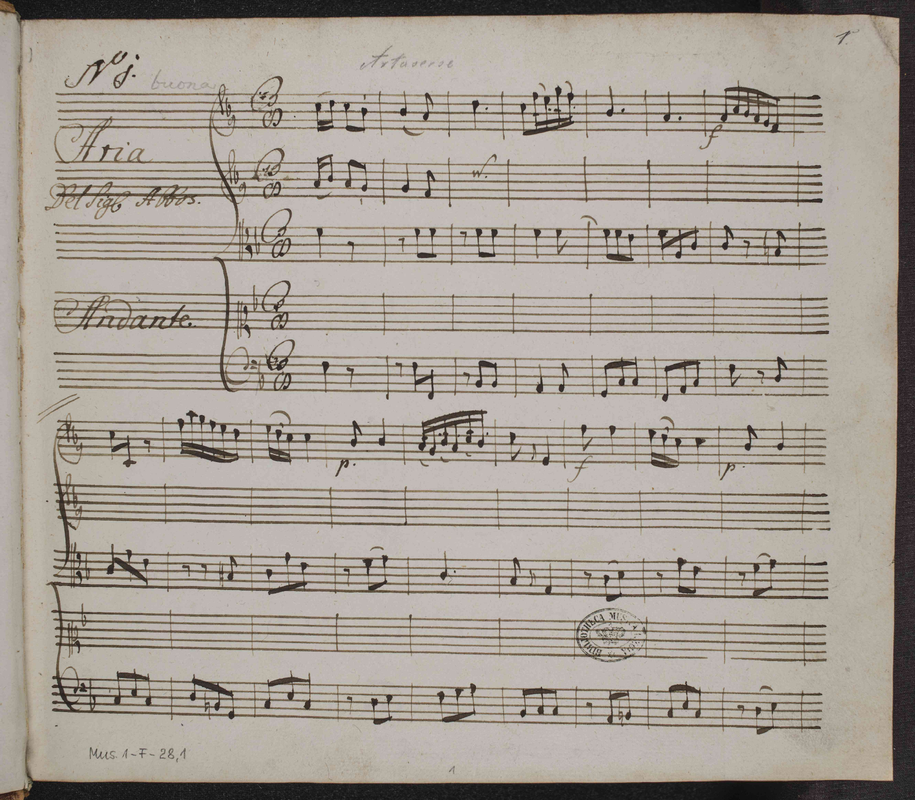 No j.
buona
Artaserse
1.
Aria
Del Sigr Abbos.
Andante.
f
p.
f
p.
Mus. 1-F-28,1
1